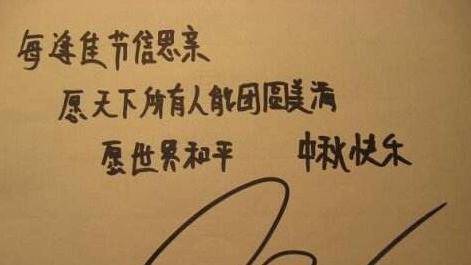 每逢佳节倍思亲
愿天下所有人能团圆美满
愿世界和平 中秋快乐